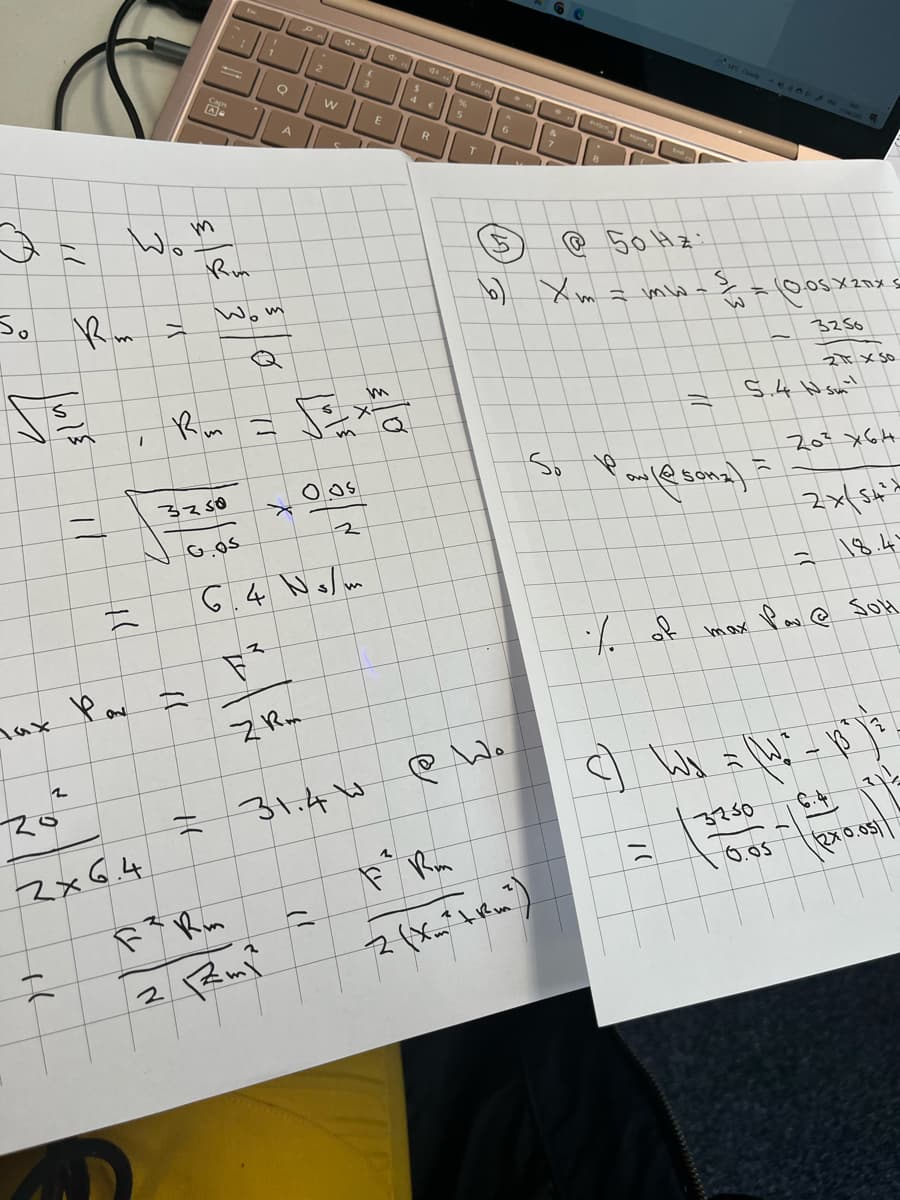 Q = W₀ m/Rm
So Rm = W₀m/Q
√(s/m), Rm = √(s/m) × m/Q
= √(3250/0.05) × 0.05/2
= 6.4 Ns/m
Pav = F²/2Rm
20²/2×6.4 = 31.4W @ W₀
= F²Rm/2(Zm)² = F²Rm/2(Xm²+Rm²)
⑤ @ 50Hz:
b) Xm = mw - s/w = (0.05×2π×5
- 3250/2π×50
= 5.4 Nsm⁻¹
So Pav(@50Hz) = 20²×6.4/2×(5.4²+
= 18.4
% of max Pav @ 50H
c) Wd = (W₀² - β²)^½
= (3250/0.05 - (6.4/(2×0.05))²)^½
Caps
A
Q
W
E
R
T
A
1
2
£
3
$
4
€
%
5
^
6
&
7
8